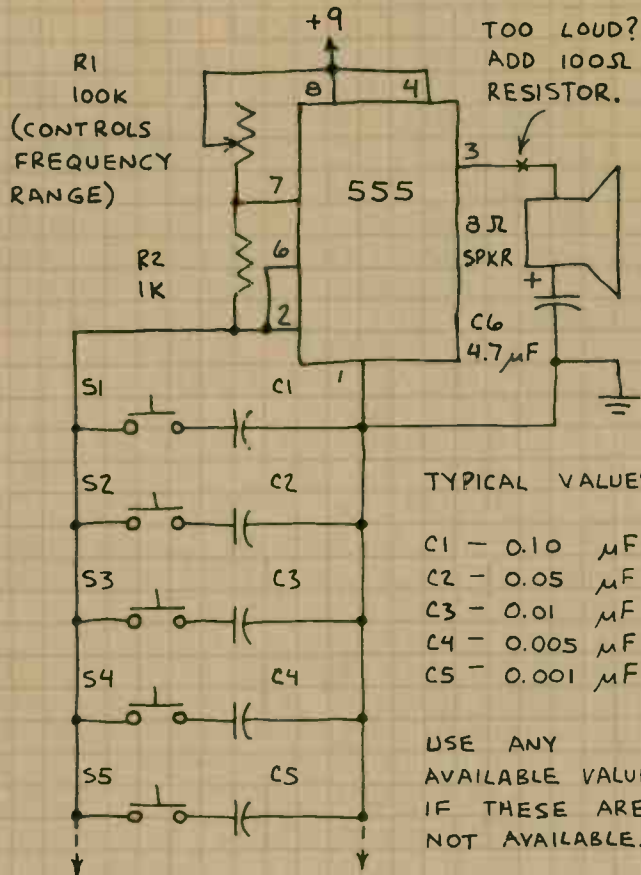 +9
TOO LOUD?
ADD 100Ω
RESISTOR.
R1
100K
(CONTROLS
FREQUENCY
RANGE)
8
4
3
7
555
8Ω
SPKR
6
R2
1K
+
2
C6
4.7µF
1
S1
C1
S2
C2
S3
C3
S4
C4
S5
C5
TYPICAL VALUE
C1 - 0.10 µF
C2 - 0.05 µF
C3 - 0.01 µF
C4 - 0.005 µF
C5 - 0.001 µF
USE ANY
AVAILABLE VALU
IF THESE ARE
NOT AVAILABLE.